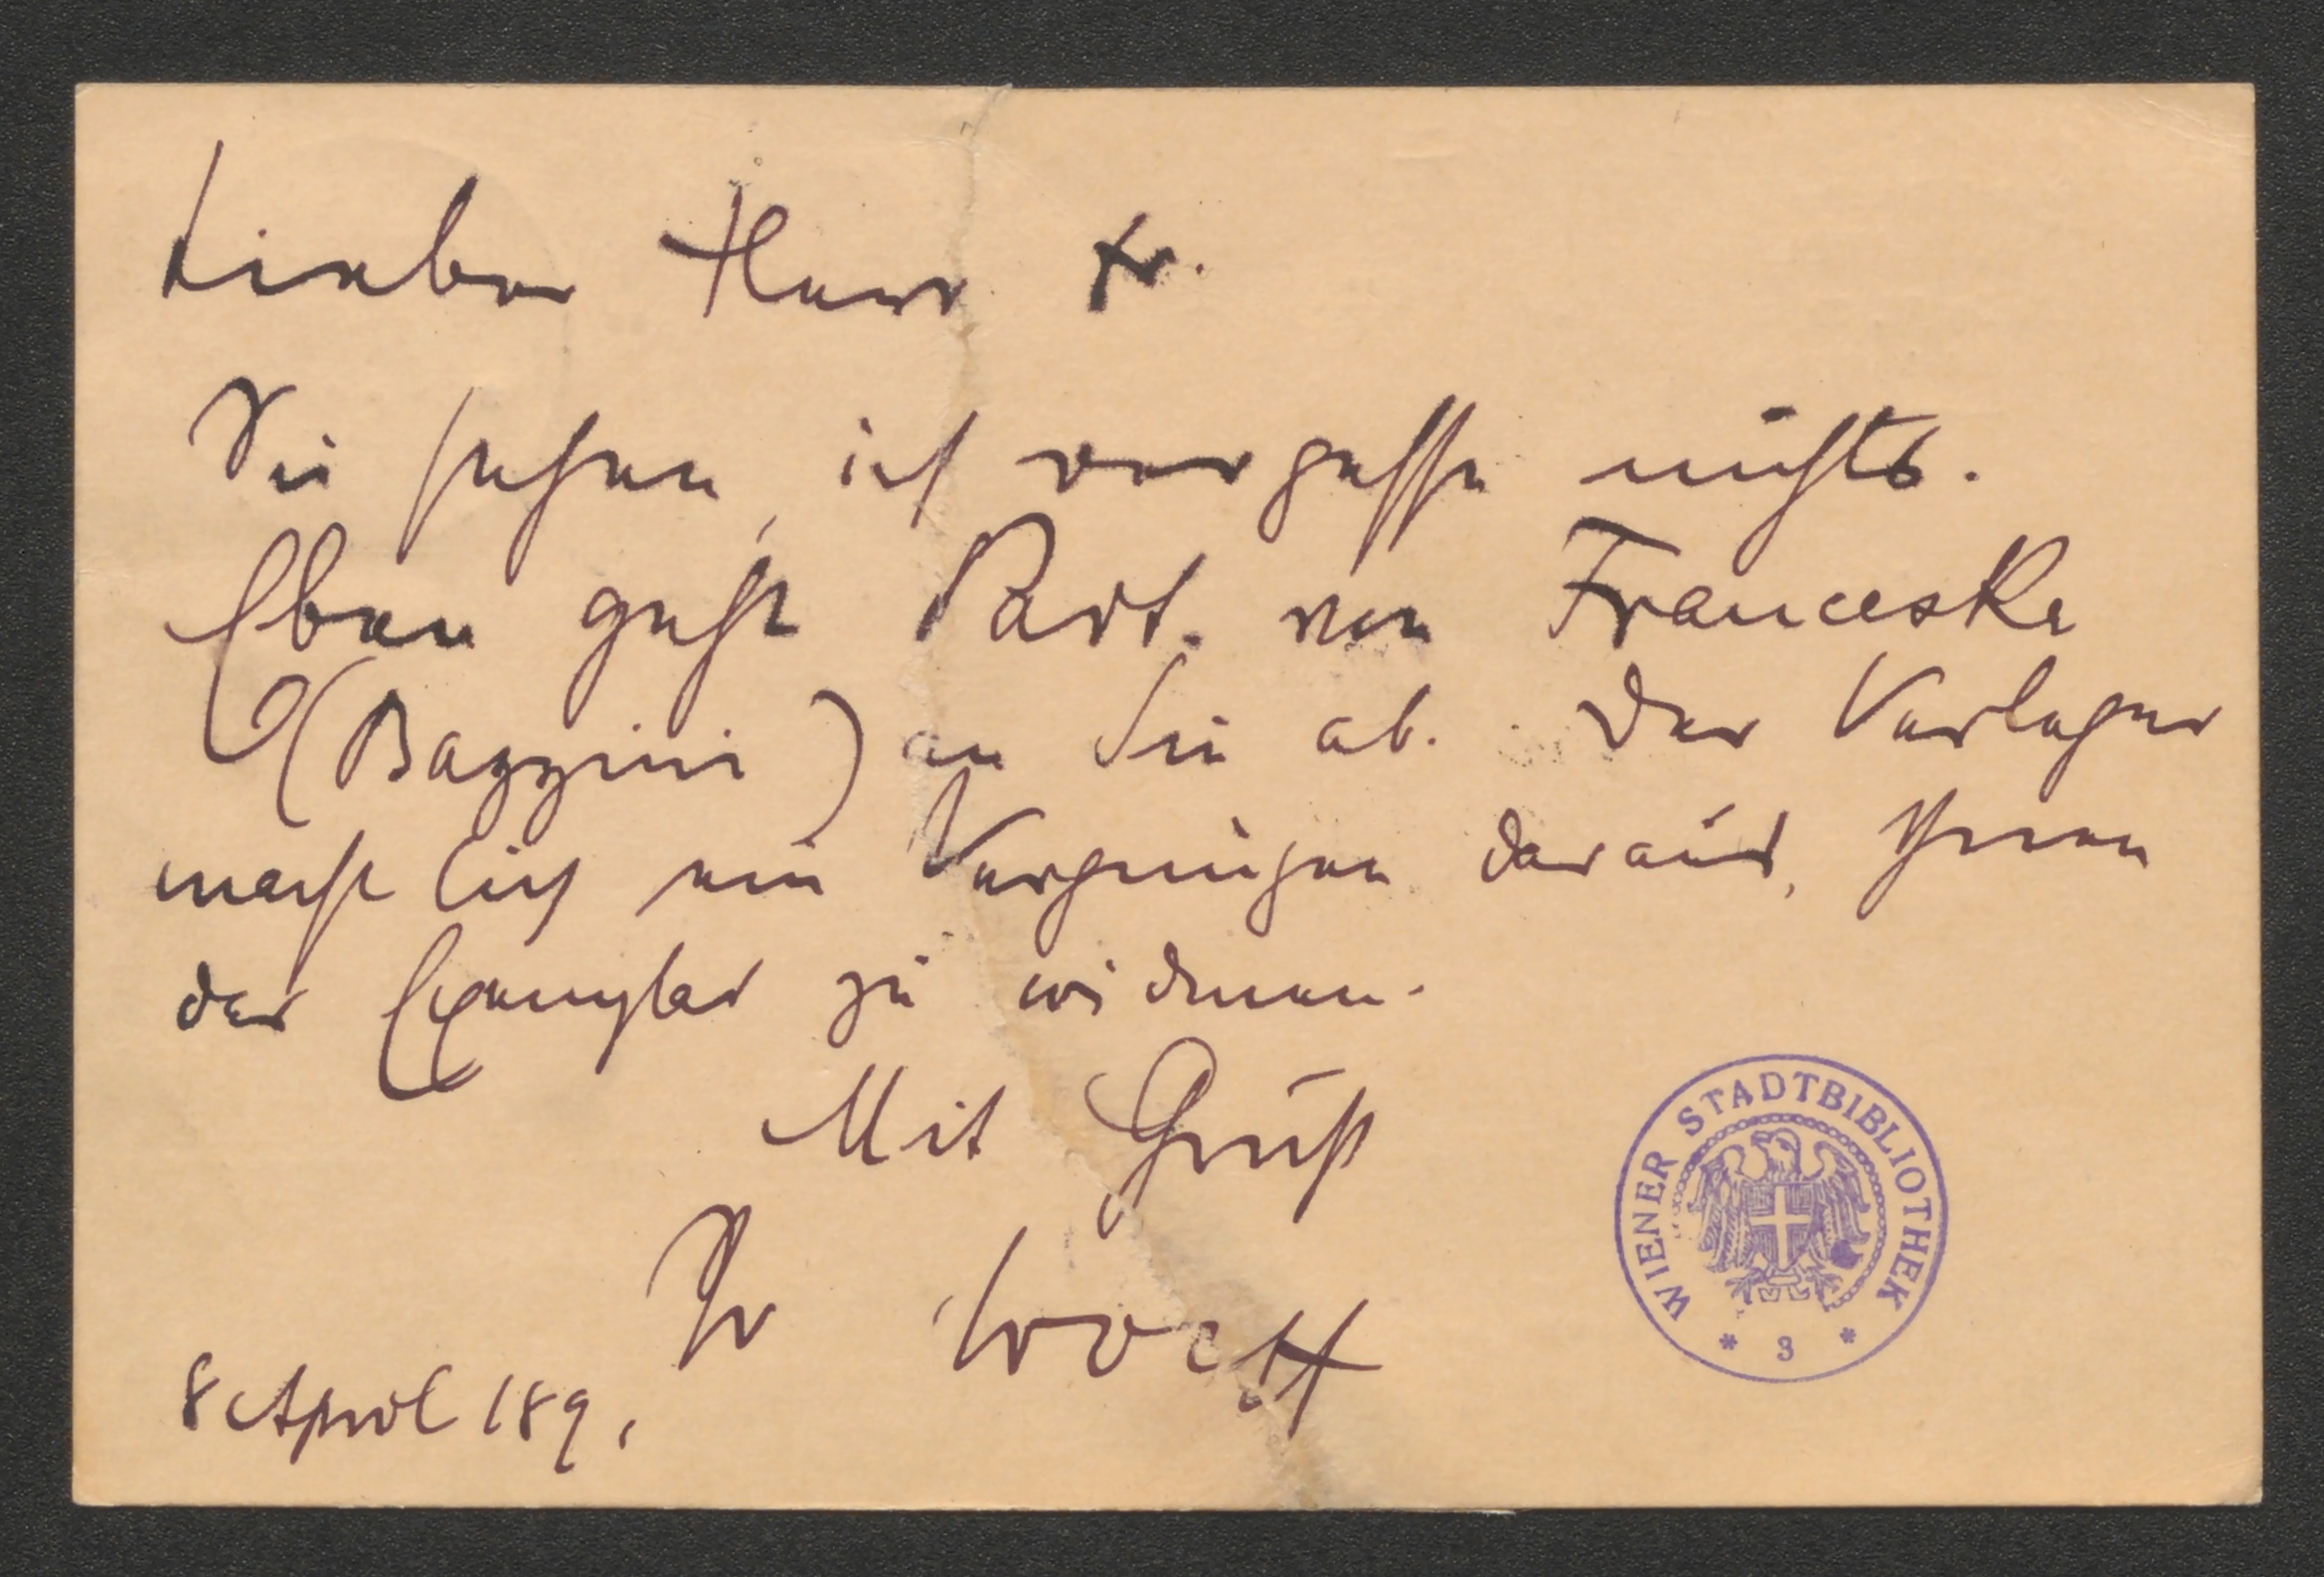 Lieber Herr Dr.
Sie sehen, ich vergesse nichts.
Eben geht Part. von Franceska
(Bazzini) an Sie ab. Der Verleger
macht sich ein Vergnügen daraus, Ihnen
das Exemplar zu widmen.
Mit Gruß
Ihr
8 April 189
WIENER STADTBIBLIOTHEK
* 3 *